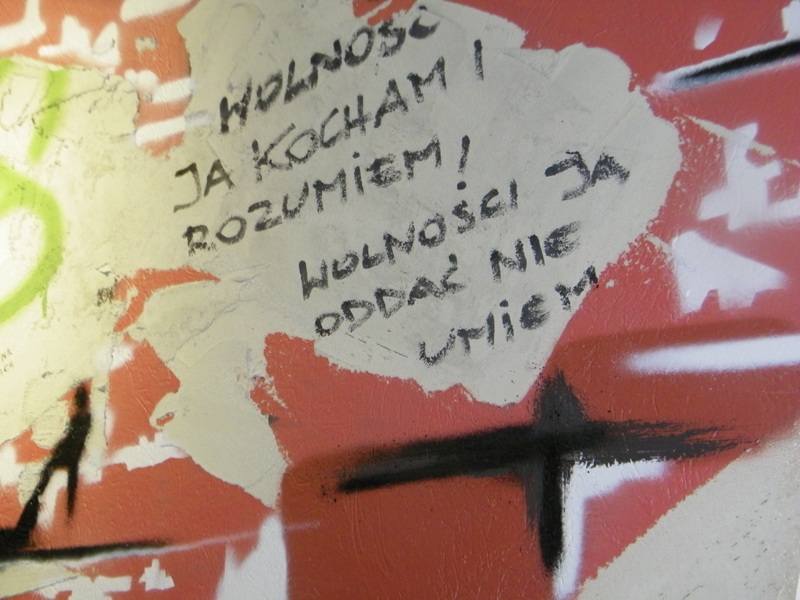 WOLNOŚĆ
JA KOCHAM I
ROZUMIEM!
WOLNOŚCI JA
ODDAĆ NIE
UMIEM